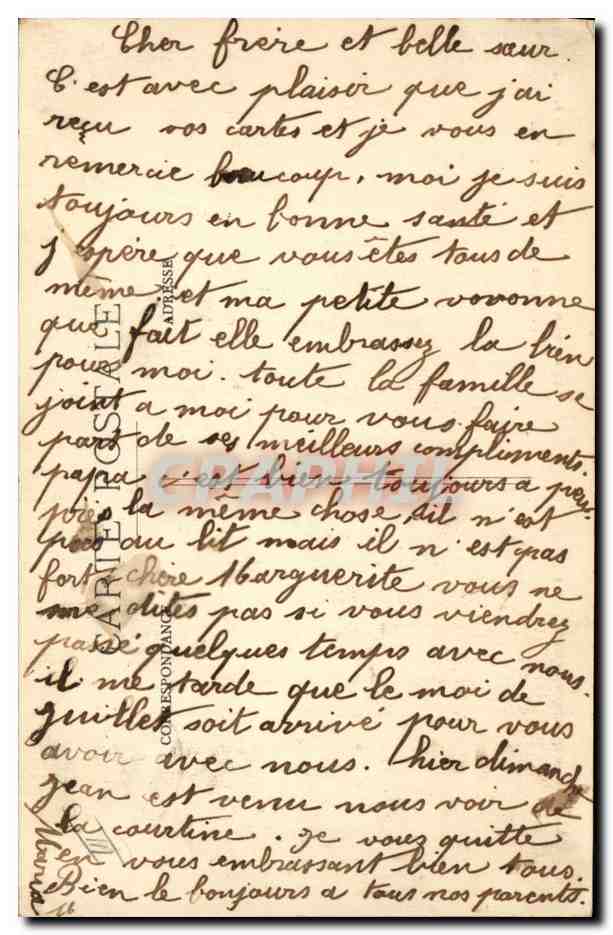 Cher frère et belle sœur.
C'est avec plaisir que j'ai
reçu vos cartes et je vous en
remercie beaucoup, moi je suis
toujours en bonne santé et
j espère que vous êtes tous de
même. et ma petite vovonne
que fait elle embrassez la bien
pour moi. toute la famille se
joint a moi pour vous faire
part de ses meilleurs compliments.
papa c'est bien toujours a peu
près la même chose, il n'est
pas au lit mais il n'est pas
fort chère Marguerite vous ne
me dites pas si vous viendrez
passé quelques temps avec nous.
il me tarde que le moi de
juillet soit arrivé pour vous
avoir avec nous. hier dimanche
Jean est venu nous voir de
la courtine. Je vous quitte
en vous embrassant bien tous.
Bien le bonjours a tous nos parents.
Maria
CARTE POSTALE
CORRESPONDANCE
ADRESSE
CRAPHIL